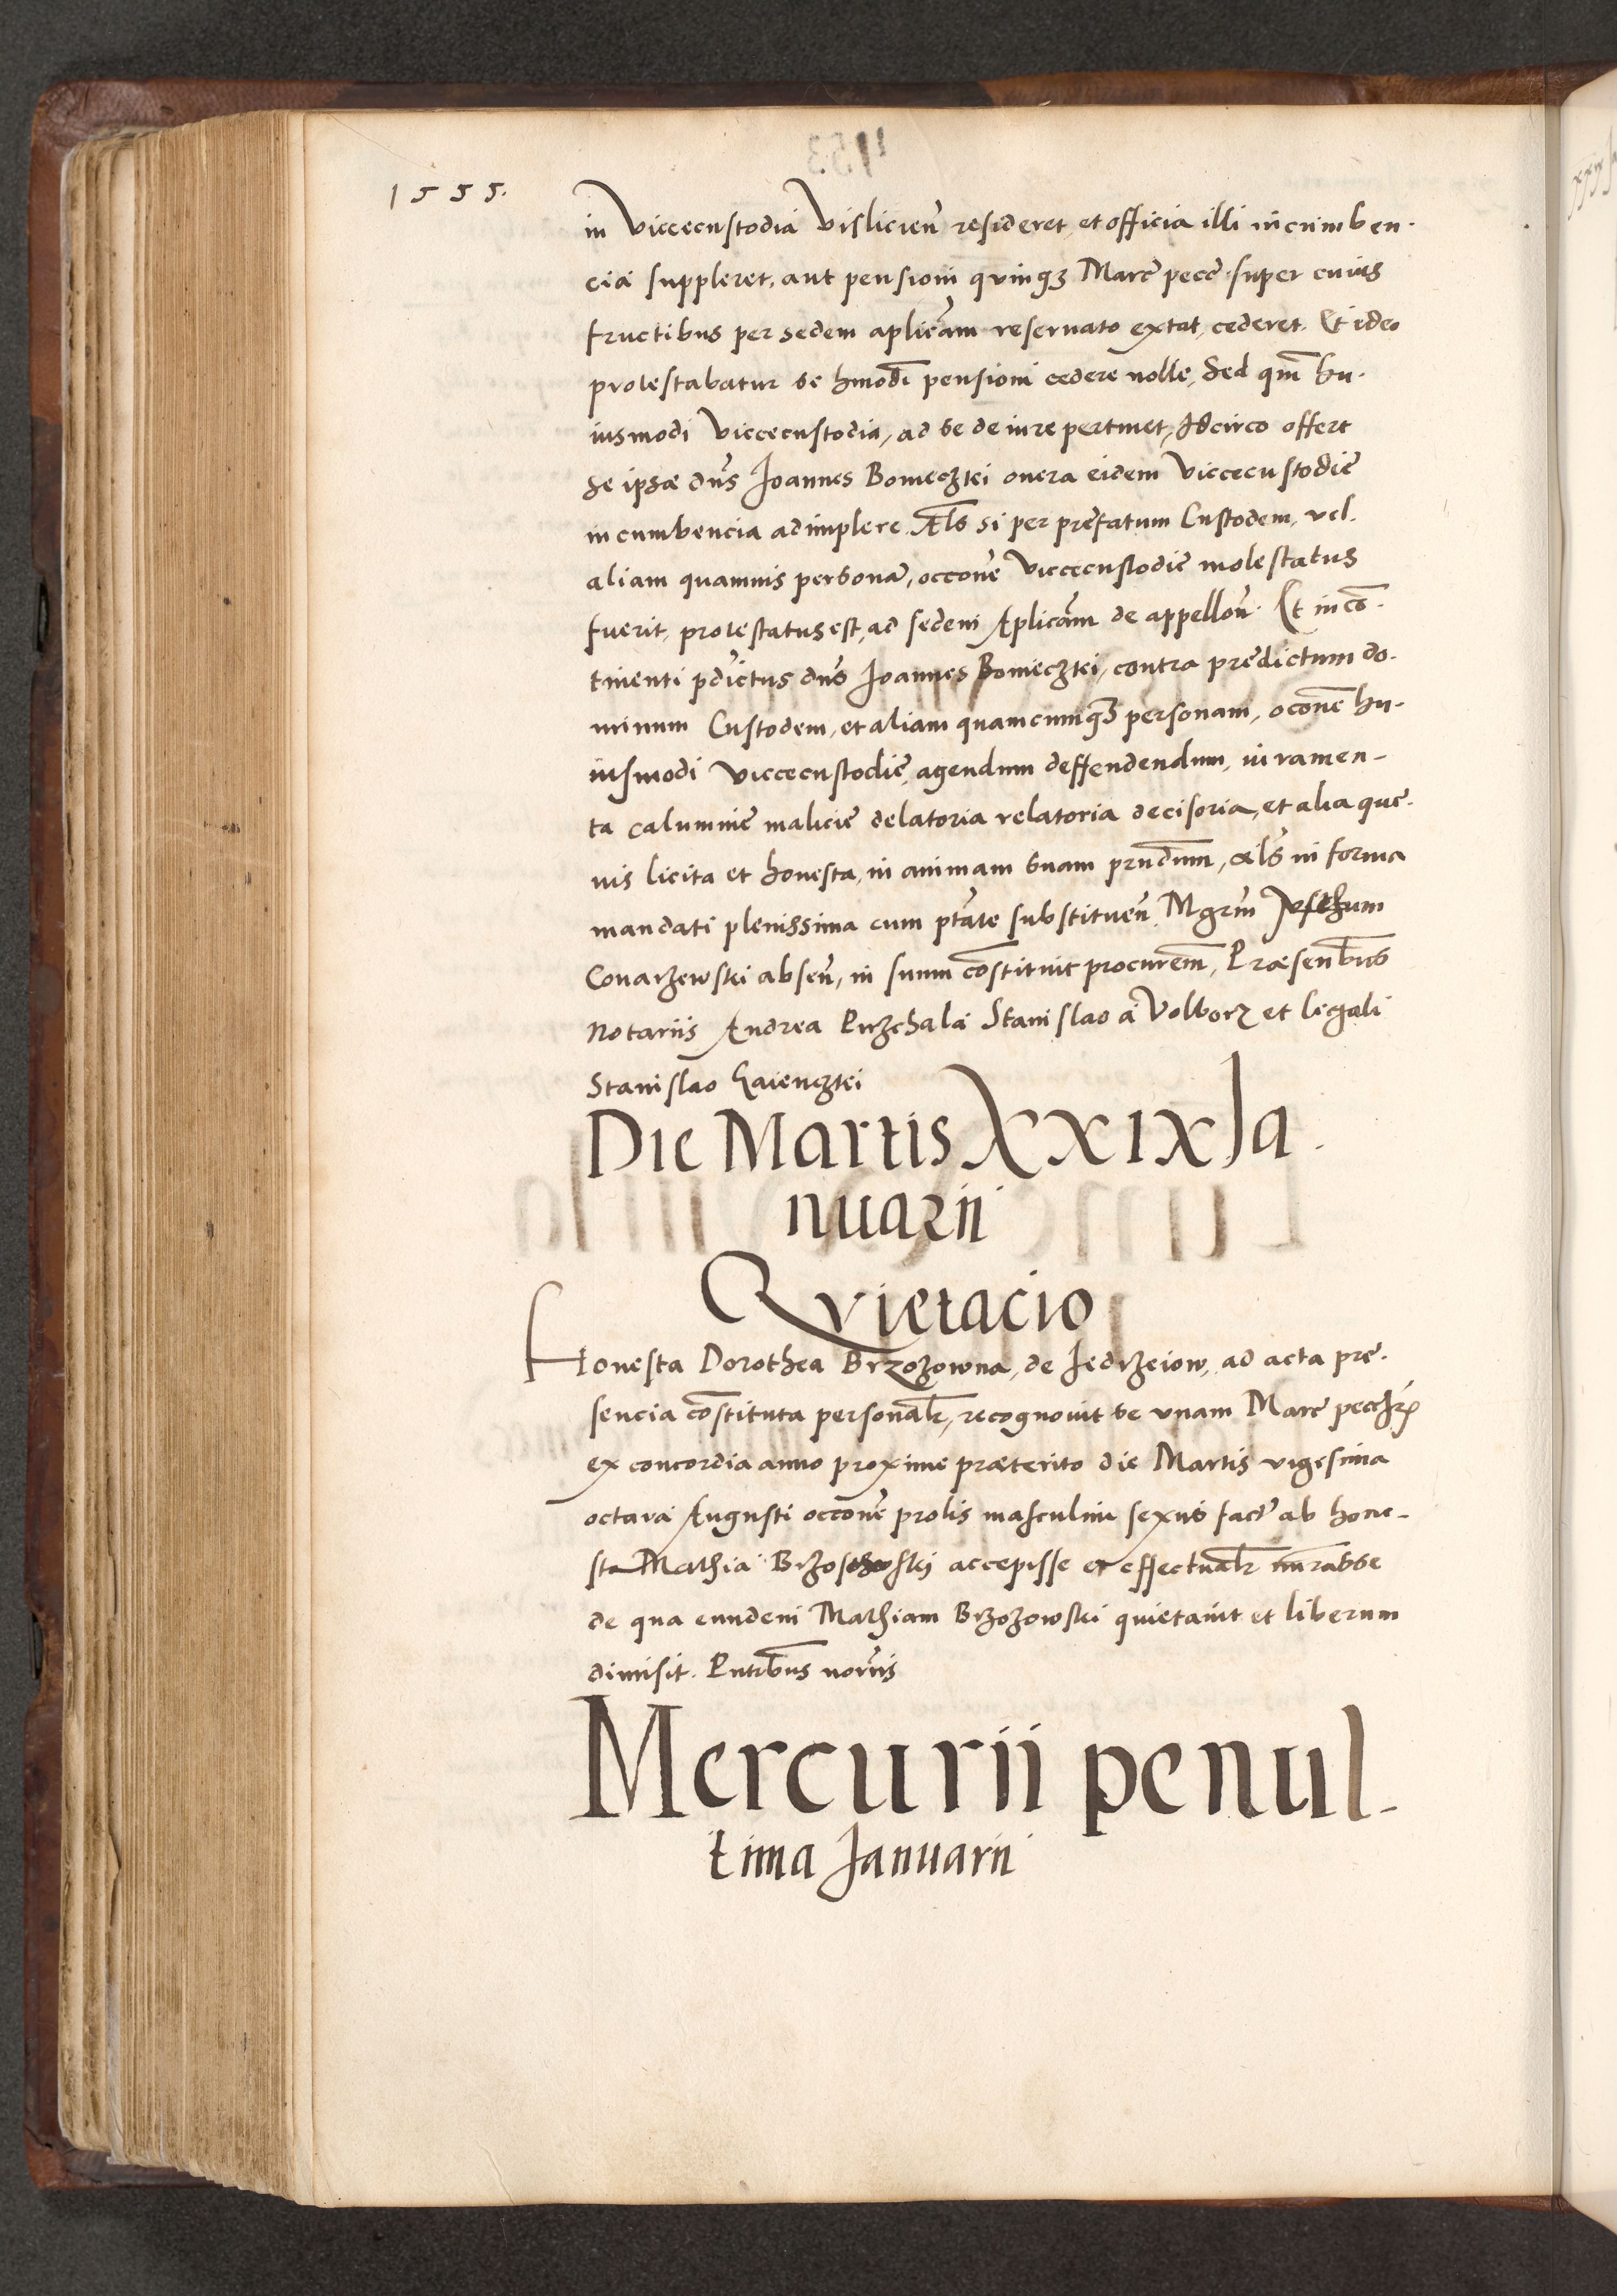 1555.
in Viccecustodia Vislicien̄ resideret, et officia illi incumben-
cia suppleret, aut pensioni quinq3 Marc̄ pecc̄ super cuius
fructibus per sedem aplicām reseruato extat, cederet. Et ideo
protestabatur se hmōdi pensioni cedere nolle, Sed qm̄ hu-
iusmodi Viccecustodia, ad se de iure pertinet, Idcirco offert
se ipse dn̄s Joannes Bomecztki onera eidem Viccecustodie
incumbencia adimplere. Als̄ si per prefatum Custodem, vel
aliam quamuis personā, occone Viccecustodie molestatus
fuerit, protestatus est, ad sedem Aplicām de appellon̄. Et in co-
tinenti pdictus dn̄s Joannes Bomecztki, contra predictum do-
minum Custodem, et aliam quamcumq3 personam, occone hu-
iusmodi viccecustodie, agendum deffendendum, iuramen-
ta calumnie malicie delatoria relatoria decisoria, et alia que-
uis licita et honesta, in animam suam prn̄dum, als̄ in forma
mandati plenissima cum ptāte substituen̄. Mgrm̄
Conarzewski absen̄, in suum cōstituit procurem̄, Præsentibus
Notariis Andrea Purzchala Stanislao a Volborz et legali
Stanislao
Die Martis XXIX Ja-
nuarii
Qvietacio
Honesta Dorothea Brzozowna, de Jedrzeiow, ad acta pre-
sencia cōstituta personalr̄, recognouit se vnam Marc̄
ex concordia anno proxime præterito die Martis vigesima
octaua Augusti occone prolis masculini sexus fact̄ ab hone-
sto Mathia accepisse et effectualr̄ nur̄asse
de qua eundem Mathiam Brzozowski quietauit et liberum
dimisit. Pntibus notariis
Mercurii penul-
tima Januarii